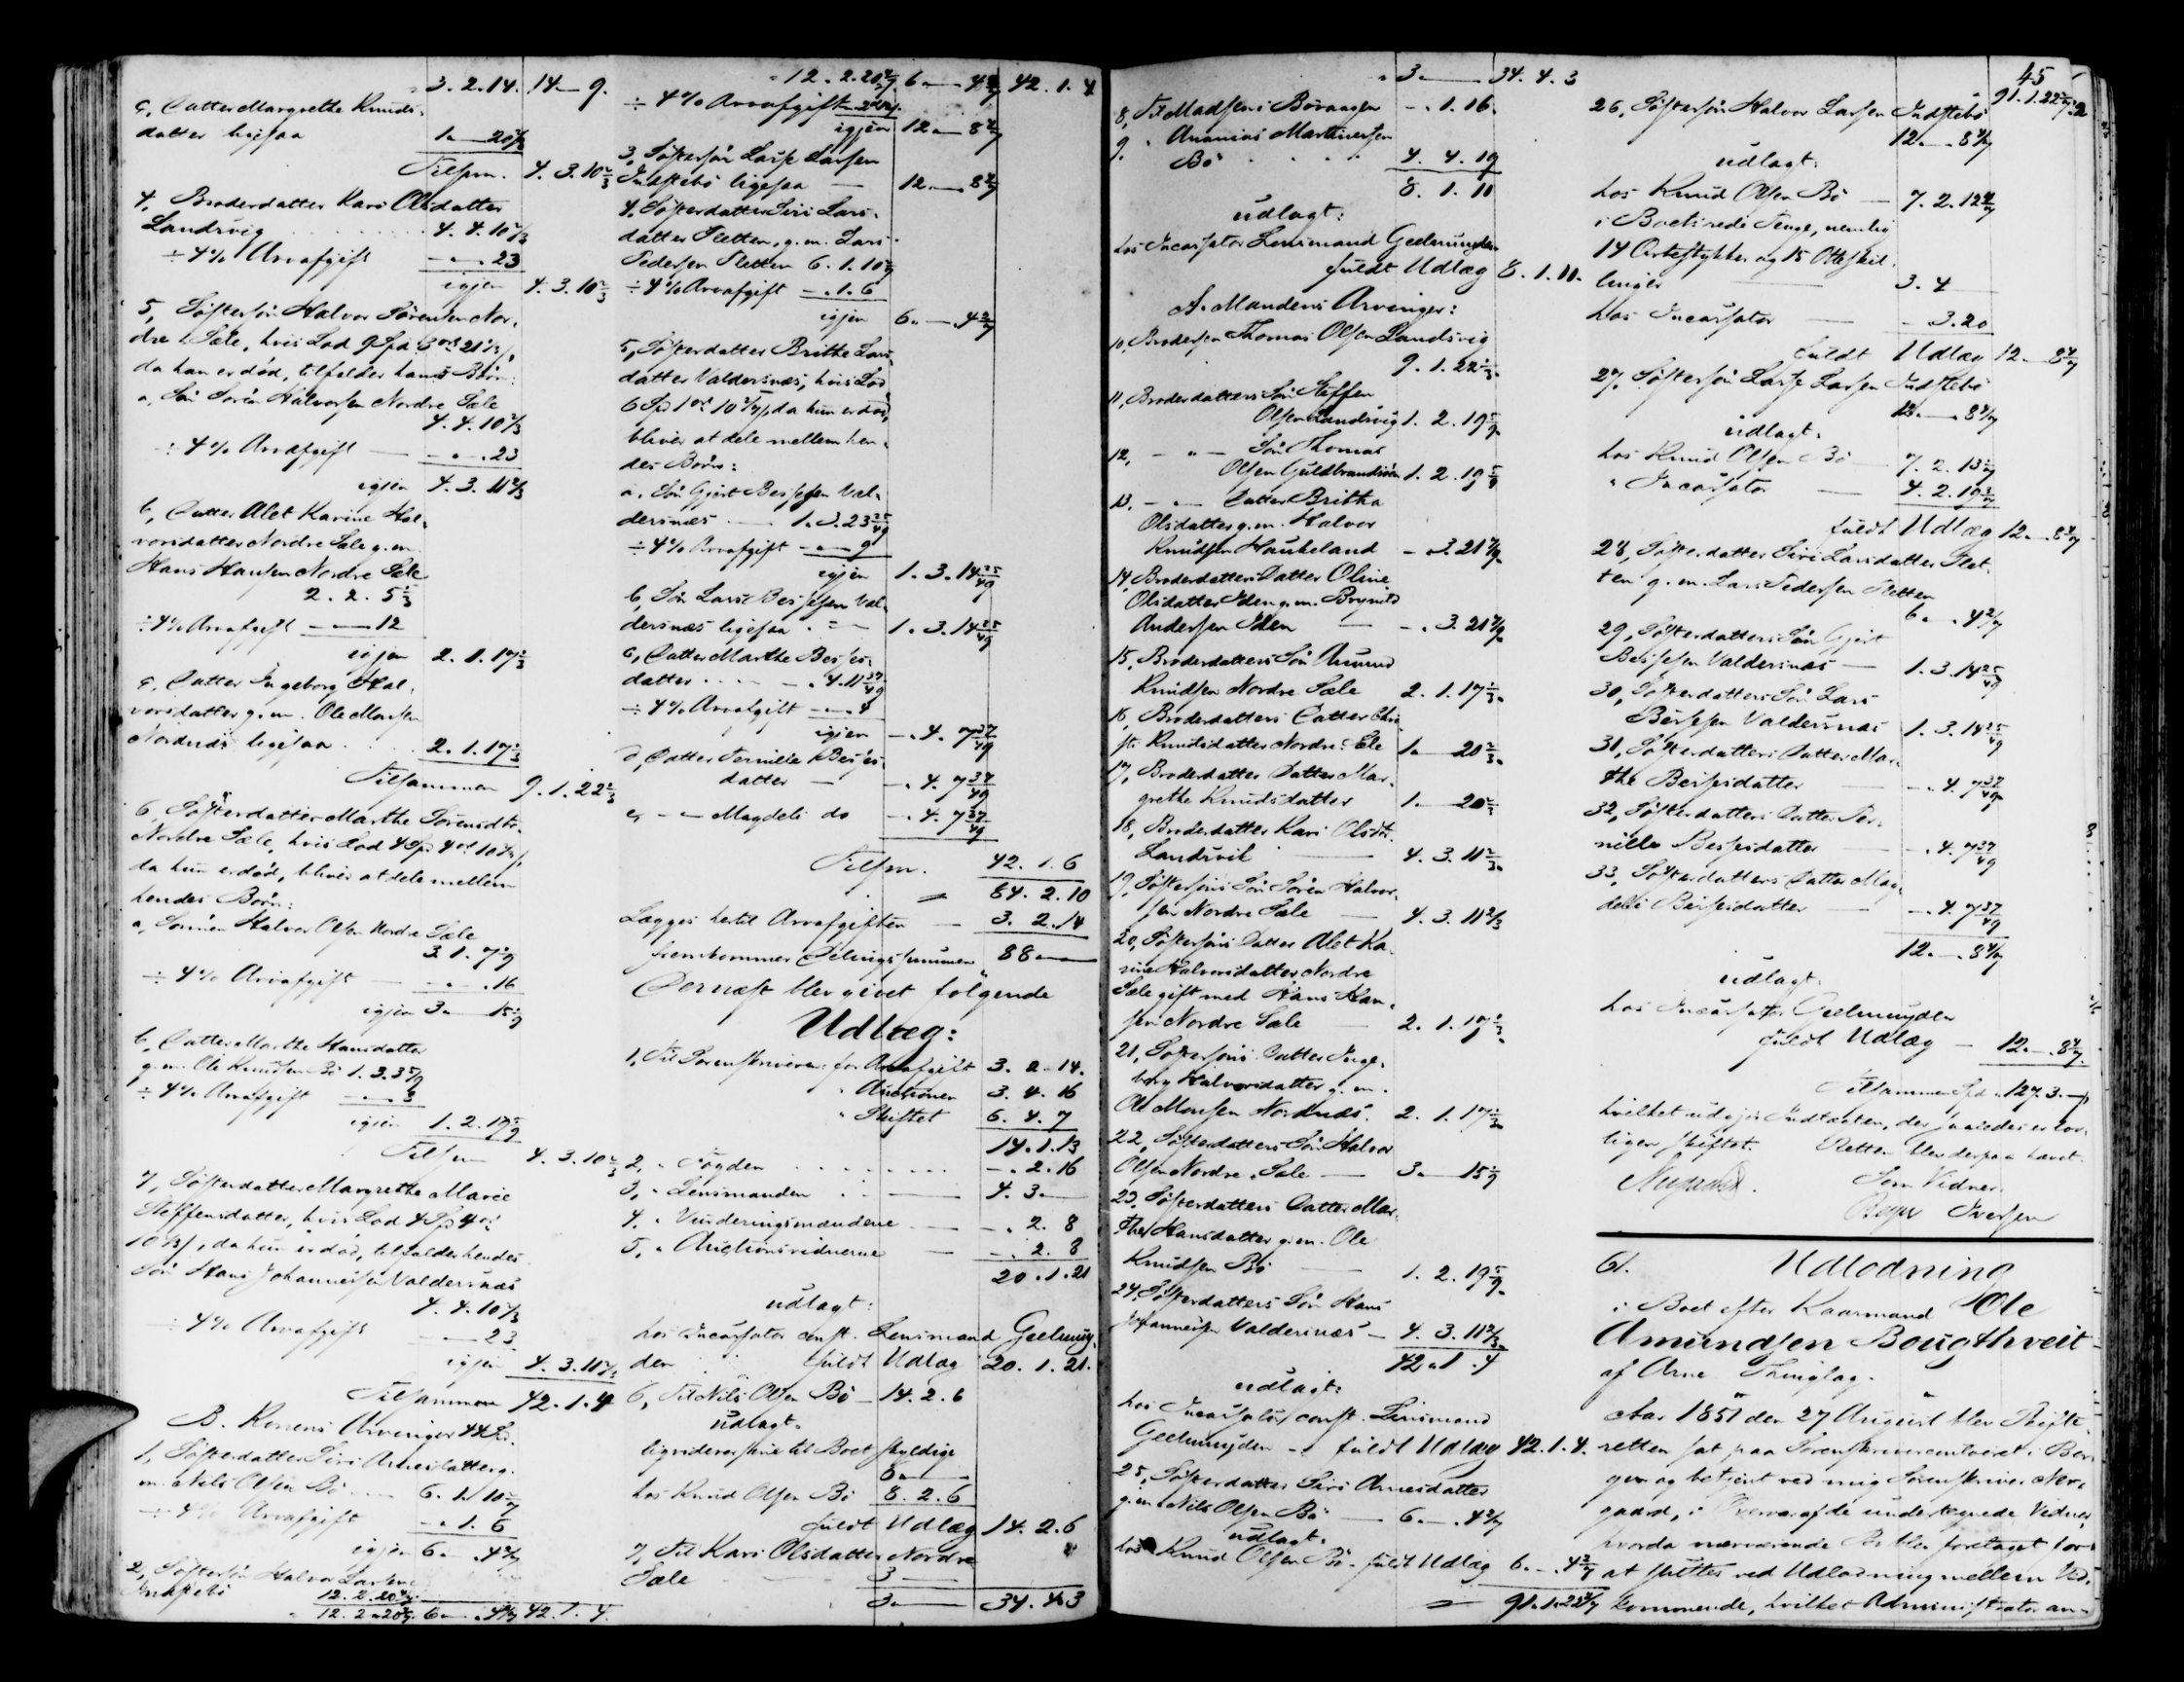 3. 2. 14. 14 — 9.
c, Datter Margrethe Knuds-
datter ligesaa 1 „ — 20 2/3
Tilsm. 4. 3. 10 2/3
4, Broderdatter Kari Olsdatter
Landsvig . . . . 4. 4. 10 2/3
÷ 4 % Arveafgift — „ — 23
igjen 4. 3. 10 2/3
5, Søstersøn Halvor Sørensen Nor-
dre Sæle, hvis Lod 9 Spd 3 ort 21 1/3 s,
da han er død, tilfalder hans Børn:
a, Søn Søren Halvorsen Nordre Sæle
4. 4. 10 2/3
÷ 4 % Arveafgift — — „ . 23
igjen 4. 3. 11 2/3
b, Datter Alet Karine Hal-
vorsdatter Nordre Sæle g. m.
Hans Hansen Nordre Sæle
2. 2. 5 1/3
÷ 4 % Arveafgift — „ — 12
igjen 2. 1. 17 1/3
c, Datter Ingeborg Hal-
vorsdatter g. m. Ole Monsen
Nordnæs ligesaa . . 2. 1. 17 1/3
Tilsammen 9. 1. 22 2/3
6, Søsterdatter Marthe Sørensdtr.
Nordre Sæle, hvis Lod 4 Sp 4 ort 10 2/3 s,
da hun er død, bliver at dele mellem
hendes Børn:
a, Sønnen Halvor Olsen Nordre Sæle
3. 1. 7 1/9
÷ 4 % Arveafgift — — „ . 16
igjen 3 „ — 15 1/9
b, Datter Marthe Hansdatter
g. m. Ole Knudsen Bö 1. 3. 3 5/9
÷ 4 % Arveafgift — „ — 8
igjen 1. 2. 19 5/9
Tilsm 4. 3. 10 2/3
7, Søsterdatter Margrethe Marie
Steffensdatter, hvis Lod 4 Sp 4 ort
10 2/3 s, da hun er død, tilfalder hendes
Søn Hans Johannesen Valdersnæs
4. 4. 10 2/3
÷ 4 % Arveafgift — — 23
igjen 4. 3. 11 2/3
Tilsammen 42. 1. 4
B. Konens Arvinger 44 Sp.
1, Søsterdatter Siri Arnesdatter g.
m. Nils Olsen Bö — 6. 1. 10 2/7
÷ 4 % Arveafgift — „ 1. 6
igjen 6 „ — . 4 2/7
2, Søstersøn Halvor Larsen
Indstebö 12. 2. 20 4/7
„ 12. 2. 20 4/7 6 „ — . 4 2/7 42. 1. 4.
„ 12. 2. 20 4/7 6 „ — 4 2/7 42. 1. 4
÷ 4 % Arveafgift
igjen 12 „ — 8 4/7
3, Søstersøn Lasse Larsen
Indstebö ligesaa — 12 „ — 8 4/7
4, Søsterdatter Siri Lars-
datter Sletten, g. m. Lars
Pedersen Sletten 6. 1. 10 2/7
÷ 4 % Arveafgift — „ 1. 6
igjen 6 „ — . 4 2/7
5, Søsterdatter Brithe Lars-
datter Valdersnæs, hvis Lod
6 Sp 1 ort 10 2/7 s, da hun er død,
bliver at dele mellem hen-
des Børn:
a, Søn Gjert Bersesen Val-
dersnæs — 1. 3. 23 25/49
÷ 4 % Arveafgift — „ — 9
igjen 1. 3. 14 25/49
b, Søn Lars Bersesen Val-
dersnæs ligesaa . — 1. 3. 14 25/49
c, Datter Marthe Berses-
datter . . . — „ 4. 11 37/49
÷ 4 % Arveafgift — „ — 4
igjen — „ 4. 7 37/49
d, Datter Pernille Berses-
datter — — „ 4. 7 37/49
e, — „ — Magdeli do — „ 4. 7 37/49
Tilsm. 42. 1. 6
84. 2. 10
Lægges hertil Arveafgiften — 3. 2. 14
fremkommer Delingssummen 88 „ —
Dernæst blev givet følgende
Udlæg:
1, Til Sorenskriveren: for Arveafgift 3. 2. 14.
„ Auctionen 3. 4. 16
„ Skiftet 6. 4. 7
14. 1. 13
2, „ Fogden . . . . . . — „ 2. 16
3, „ Lensmanden . . — 4. 3 „ —
4, „ Vurderingsmændene — — „ 2. 8
5, „ Auctionsvidnerne — — „ 2. 8
20. 1. 21
udlagt:
hos Incassator const. Lensmand Geelmuy-
den fuldt Udlæg 20. 1. 21.
6, Til Nils Olsen Bö — 14. 2. 6
udlagt:
ligvidererskine til Boet skyldige
6 „ —
hos Knud Olsen Bö 8. 2. 6
fuldt Udlæg 14. 2. 6
7, Til Kari Olsdatter Nordre
Sæle 3 —
3 „ — 34. 4. 3
„ 3 „ — 34. 4. 3
8, Til Madsens — „ 1. 16.
9, „ Ananias Martinersen
Bö . . . . 4. 4. 19
8. 1. 11
udlagt:
hos Incassator Lensmand Geelmuyden
fuldt Udlæg 8. 1. 11.
A. Mandens Arvinger:
10, Brodersøn Thomas Olsen Landsvig
9. 1. 22 2/3
11, Broderdatters Søn Steffen
Olsen Landsvig 1. 2. 19 5/9
12, — „ — Søn Thomas
Olsen Guldbrandsøen 1. 2. 19 5/9
13, — „ — Datter Britha
Olsdatter g. m. Halvor
Knudsen Haukeland — „ 3. 21 7/9
14, Broderdatters Datter Oline
Olsdatter Iden g. m. Brynild
Andersen Iden — — „ 3. 21 7/9
15, Broderdatters Søn Amund
Knudsen Nordre Sæle 2. 1. 17 1/3
16, Broderdatters Datter Chri-
sti Knudsdatter Nordre Sæle 1 „ — 20 2/3
17, Broderdatters Datter Mar-
grethe Knudsdatter 1 „ — 20 2/3
18, Broderdatter Kari Olsdtr.
Landsvik — 4. 3. 11 2/3
19, Søstersøns Søn Søren Halvor-
sen Nordre Sæle — 4. 3. 11 2/3
20, Søstersøns Datter Alet Ka-
rine Halvorsdatter Nordre
Sæle gift med Hans Han-
sen Nordre Sæle — 2. 1. 17 1/3
21, Søstersøns Datter Inge-
borg Halvorsdatter g. m.
Ole Monsen Nordnæs. 2. 1. 17 1/3
22, Søsterdatters Søn Halvor
Olsen Nordre Sæle — 3 „ — 15 1/9
23, Søsterdatters Datter Mar-
the Hansdatter g. m. Ole
Knudsen Bö — 1. 2. 19 5/9
24, Søsterdatters Søn Hans
Johannesen Valdersnæs — 4. 3. 11 2/3
42 „ 1. 4
udlagt:
hos Incassator const. Lensmand
Geelmuyden — fuldt Udlæg 42. 1. 4.
25, Søsterdatter Siri Arnesdatter
g. m. Nils Olsen Bö — 6 „ — . 4 2/7
udlagt:
hos Knud Olsen Bö fuldt Udlæg 6 „ — . 4 2/7
91. 1. 22 4/7
45
91. 1. 22 4/7
26, Søstersøn Halvor Larsen Indstebö
12 „ — . 8 4/7
udlagt:
hos Knud Olsen Bö — 7. 2. 12 4/7
i Boets rede Penge, nemlig
14 Ortestykker og 15 Otteskil-
linger — 3. 4
hos Incassator — „ 3. 20
fuldt Udlæg 12 „ — 8 4/7
27, Søstersøn Lasse Larsen Indstebö
12 „ — . 8 4/7
udlagt.
hos Knud Olsen Bö — 7. 2. 13
„ Incassator — 4. 2. 19
fuldt Udlæg 12 „ — . 8 4/7
28, Søsterdatter Siri Larsdatter Slet-
ten g. m. Lars Pedersen Sletten
6 „ — . 4 2/7
29, Søsterdatters Søn Gjert
Bersesen Valdersnæs — 1. 3. 14 25/49
30, Søsterdatters Søn Lars
Bersesen Valdersnæs 1. 3. 14 25/49
31, Søsterdatters Datter Mar-
the Bersesdatter — — „ 4. 7 37/49
32, Søsterdatters Datter Per-
nille Bersesdatter — — „ 4. 7 37/49
33, Søsterdatters Datter Mag-
deli Bersesdatter — — „ 4. 7 37/49
12 „ — . 8 4/7
udlagt.
hos Incassator Geelmuyden
fuldt Udlæg — 12 „ — . 8 4/7
Tilsammen Spd „ 127. 3. —
hvilket udgjør Indtægten, der saaledes er lov-
ligen skiftet. Retten blev derpaa hævet.
Som Vidner
Iversen
61. Udlodning
i Boet efter Kaarmand Ole
Amundsen Bougthveit
af Arne Thinglag.
Aar 1851 den 27 August blev Skifte-
retten sat paa Sorenskrivercontoiret i Ber-
gen og betjent ved mig Sorenskriver Ner-
gaard, i Overvær af de undertegnede Vidner,
hvorda nærværende Bo blev foretaget for
at sluttes ved Udlodning mellem Ved-
kommende, hvilket Administrator an-